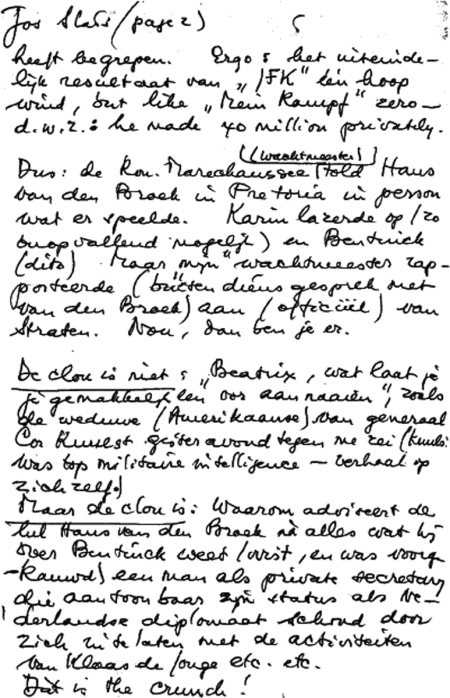 Jos Slats (page 2) 5
heeft begrepen. Ergo: het uiteinde-
lijk resultaat van „JFK" één hoop
wind, but like „Mein Kampf" zero-
d.w.z.: he made 40 million privately.
Dus: de Kon. Marechaussee (wachtmeester) told Hans
van den Broek in Pretoria in person
wat er speelde. Karin lazerde op (zo
onopvallend mogelijk) en Bentinck
(dito) Maar mijn wachtmeester rap-
porteerde (buiten diens gesprek met
van den Broek) aan (officiëel) van
Straten. Nou, dan ben je er.
De clou is niet: „Beatrix, wat laat je
je gemakkelijk een oor aannaaien", zoals
de weduwe (Amerikaanse) van generaal
Cor gisteravond tegen me zei (
was top militaire intelligence — verhaal op
zichzelf.)
Maar de clou is: Waarom adviseert de
lul Hans van den Broek na alles wat hij
over Bentinck weet/wist, en was voorge-
-kauwd) een man als private secretary
die aantoonbaar zijn status als Ne-
derlandse diplomaat schond door
zich in te laten met de activiteiten
van Klaas de Jonge etc. etc.
Dat is the crunch!